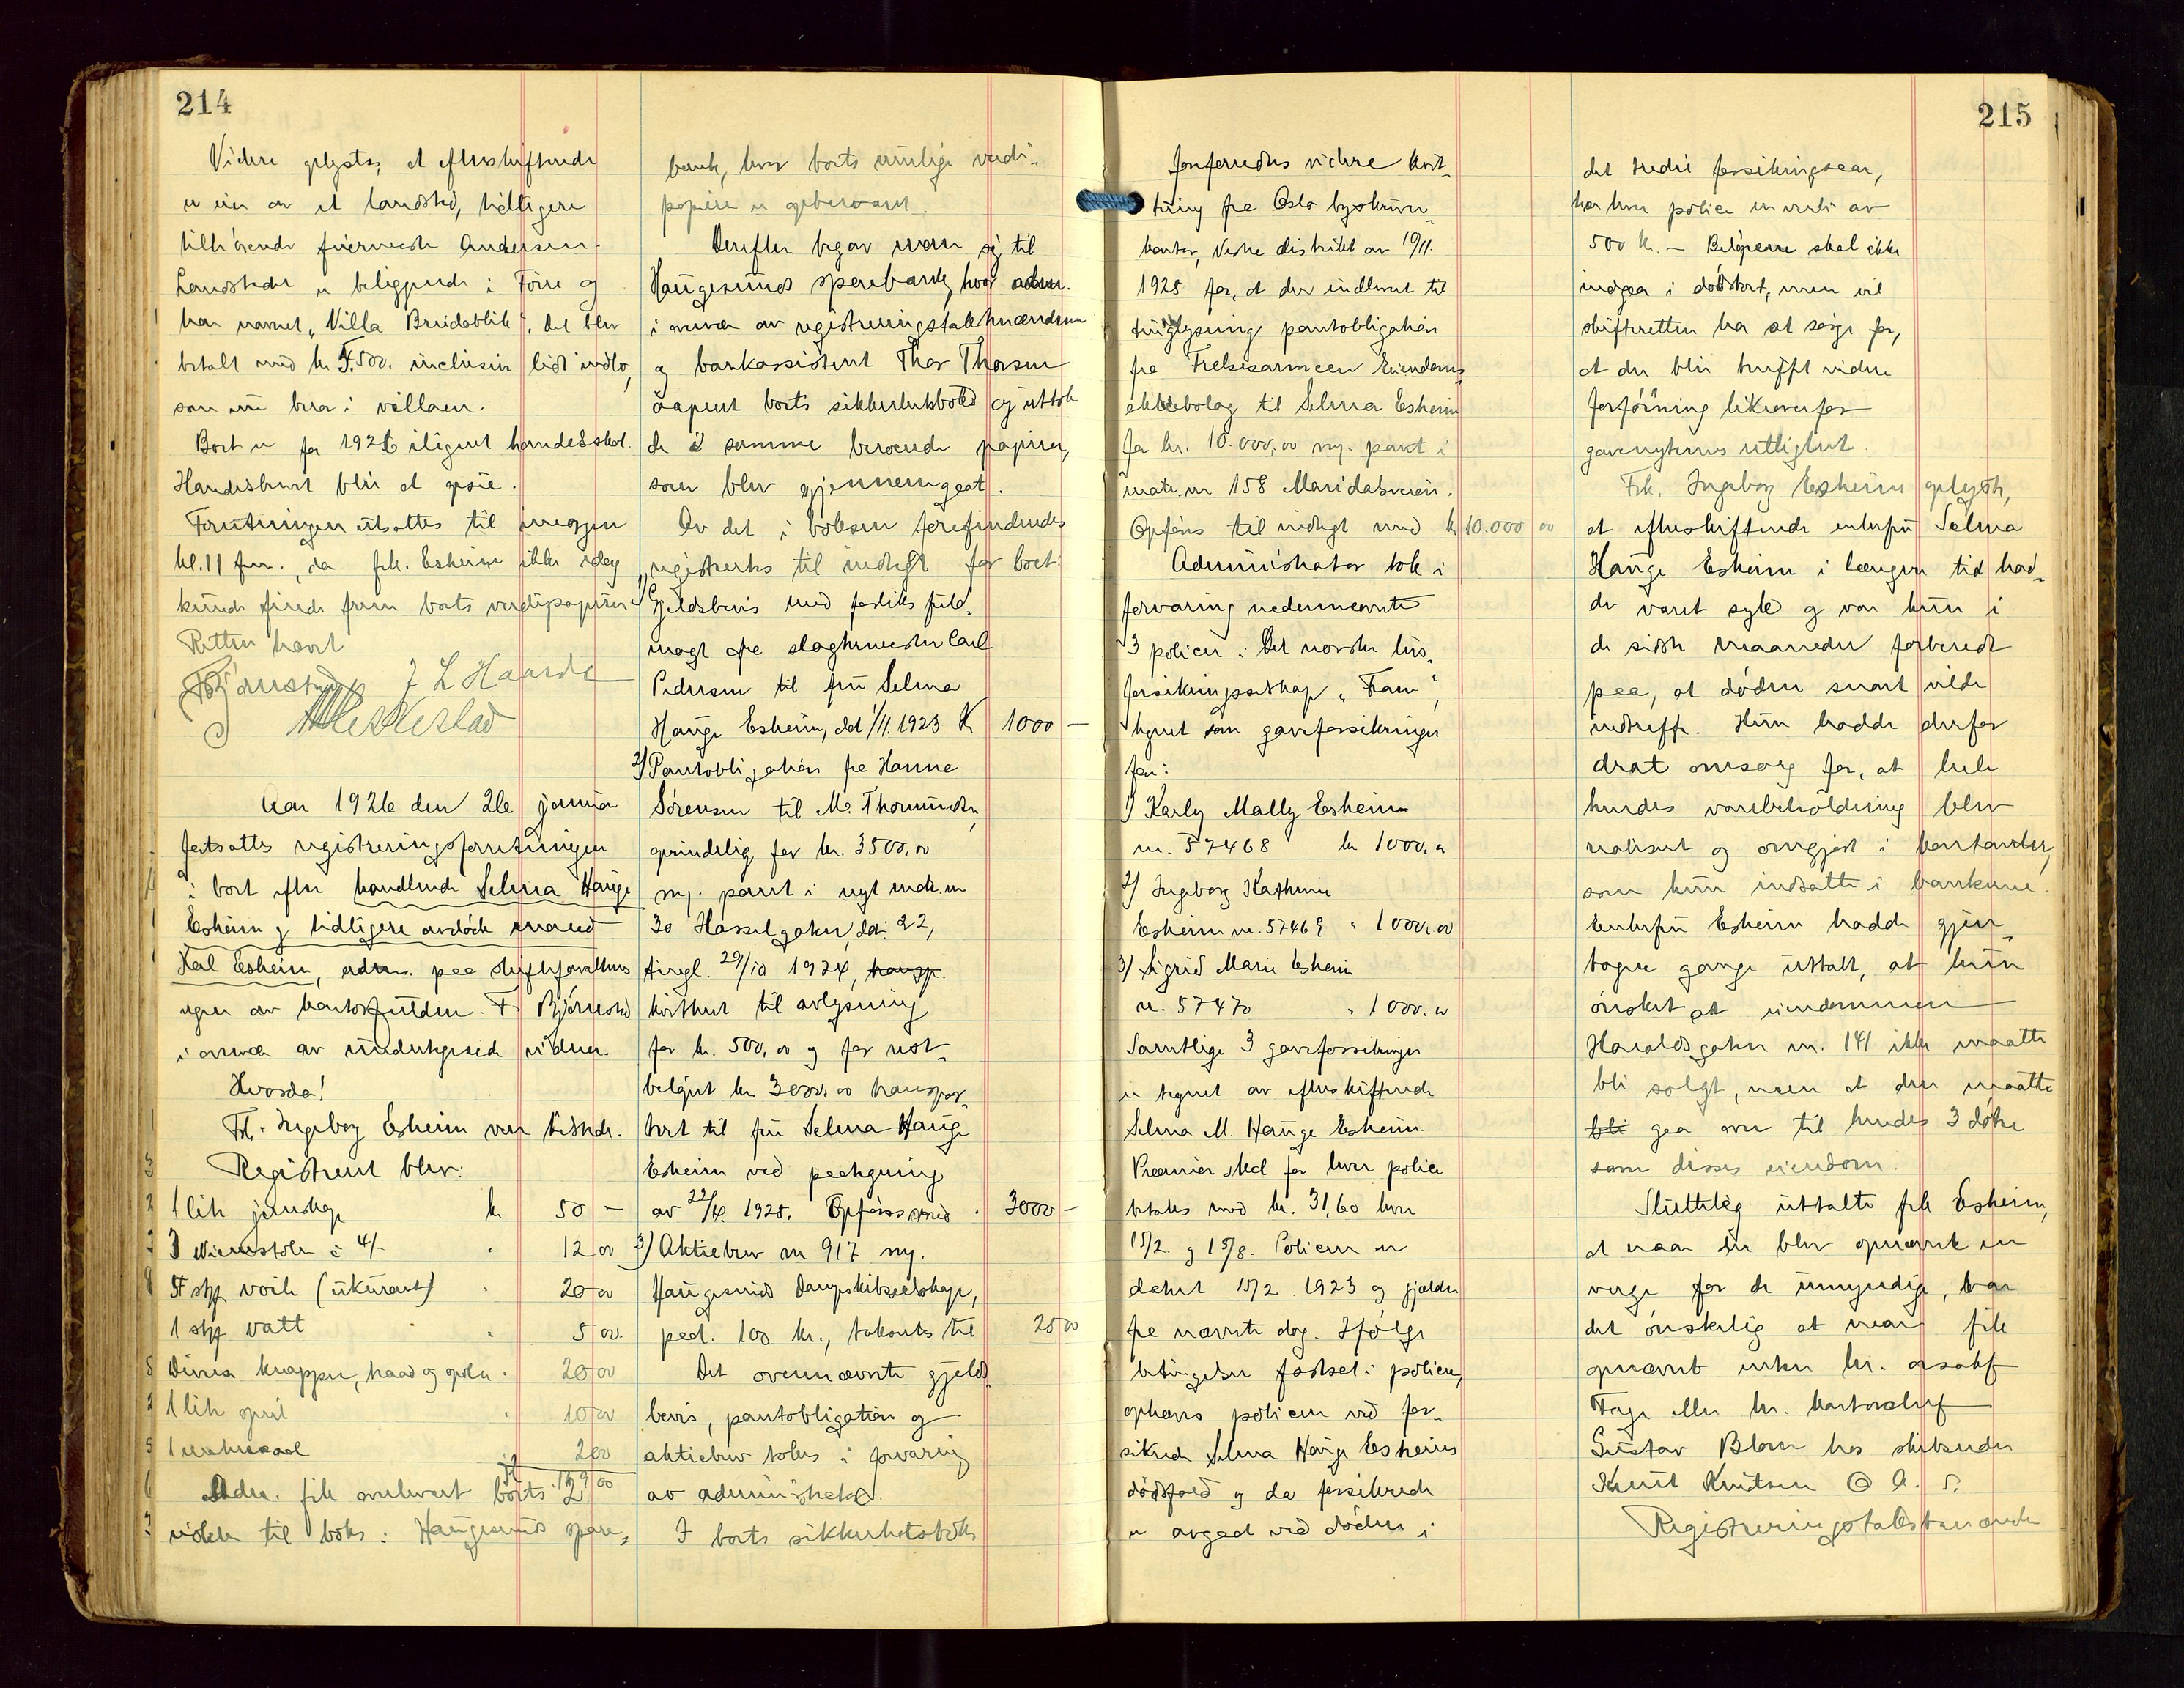 214
Videre oplystes, at efterskiftende
er eier av et landsted, tidligere
tilhörende fyrvert Andersen.
Landstedet er beliggende i Förre og
har navnet "Villa Breidablik", det blev
betalt med kr 4.500. inclusive lidt indbo,
som nu bror i villaen.
Boet er for 1926 ilignet handelsskat.
Handelsbrevet blir at opsie.
Forretningen utsattes til imorgen
kl. 11 fm., da frk. Eskeim ikke idag
kunde finde frem boets verdipapirer
Retten hævet
J L Haarde
H. Meskestad
Aar 1926 den 26 januar
fortsattes registreringsforretningen
i boet efter handlende Selma Hauge
Eskeim og tidligere avdöde mand
Karl Eskeim, adm. paa skifteforvalterens
vegne av kontorfuldm. F. Björnstad
i nærvær av undertegnede vidner.
Hvorda!
Frk. Ingeborg Eskeim var tilstede.
Registrert blev:
1 lite kr 50 –
3 Wienerstoler à 4/- " 12 00
7 stk voile (ukurant) " 20 00
1 stk vatt " 5 00.
Diverse knapper, traad og " 20 00
1 lite speil " 10 00
1 2 00
Adm. fik overlevert boets 2
nökler til boks i Haugesunds spare-
bank, hvor boets övrige verdi-
papirer er opbevaret.
Derefter begav man sig til
Haugesunds sparebank, hvor adm.
i nærvær av registreringstakstmændene
og bankassistent Thor Thorsen
aapnet boets sikkerhetsboks og uttok
de i samme beroende papirer,
som blev gjennemgaat.
Av det i boksen forefindendes
registrertes til indtægt for boet:
1) Gjeldsbevis med fuld-
magt fra slagtermester Carl
Pedersen til fru Selma
Hauge Eskeim, dat 1/11. 1923 kr 1000 –
2) Pantobligation fra Hanne
Sörensen til M. Thommesen,
oprindelig for kr. 3500,00
m. pant i nyt matr. nr
30 Hasselgaten, dat. 22,
tingl. 29/10 1924, transp.
kvittert til avlysning
for kr. 500,00 og for rest-
belöpet kr 3000,00 transpor-
tert til fru Selma Hauge
Eskeim ved paategning
av 22/4. 1925. Opföres med " 3000 –
3) Aktiebrev nr 917 m.
Haugesunds Dampskibsselskap,
paal. 100 kr., taksertes til 25 00
Det ovennævnte gjelds-
bevis, pantobligation og
aktiebrev tokes i forvaring
av administrator.
I boets sikkerhetsboks
215
forefandtes videre kvit-
tering fra Oslo byskriver-
kontor, Vestre distrikt av 19/11.
1925 for, at der indlevert til
tinglysning pantobligation
fra Frelsesarmeen Eiendoms-
aktiebolag til Selma Eskeim
for kr. 10.000,00 m. pant i
matr. nr 158 Maridalsveien.
Opföres til indtægt med kr 10.000 00
Administrator tok i
forvaring nedennævnte
3 policer i Det norske livs-
forsikringsselskap "Fram",
tegnet som gaveforsikringer
for:
1) Karly Mally Eskeim
nr. 57468 kr 1000,00
2) Ingeborg Kathrine
Eskeim nr. 57469 " 1000,00
3) Sigrid Marie Eskeim
nr. 57470 " 1000.00
Samtlige 3 gaveforsikringer
er tegnet av efterskiftende
Selma M. Hauge Eskeim.
Præmier skal for hver police
betales med kr. 31,60 hver
15/2. og 15/8. Policen er
datert 15/2. 1923 og gjelder
fra nævnte dag. Ifölge
betingelser fastsat i policen,
ophæves policen ved for-
sikrede Selma Hauge Eskeims
dödsfald og da forsikrede
er avgaat ved döden i
det tredie forsikringsaar,
har hver police en verdi av
500 kr. – Belöpene skal ikke
indgaa i dödsboet, men vil
skifteretten ha at sörge for,
at der blir truffet videre
forföining likeoverfor
gavenyternes
Frk. Ingeborg Eskeim oplyste,
at efterskiftende enkefru Selma
Hauge Eskeim i længere tid had-
de været syk og var hun i
de sidste maaneder forberedt
paa, at döden snart vilde
indtreffe. Hun hadde derfor
drat omsorg for, at hele
hendes varebeholdning blev
realisert og omgjort i kontanter,
som hun indsatte i bankene.
Enkefru Eskeim hadde gjen-
tagne gange uttalt, at hun
önsket at eiendommen
Haraldsgaten nr. 141 ikke maatte
bli solgt, men at den maatte
bli gaa over til hendes 3 dötre
som disses eiendom.
Sluttelig uttalte frk Eskeim,
at naar der blev opnævnt en
verge for de umyndige, var
det önskelig at man fik
opnævnt enten hr. o.r.sakf
Fage eller hr. kontorchef
Gustav Blom hos skibsreder
Knut Knutsen O. A. S.
Registreringstakstmændene